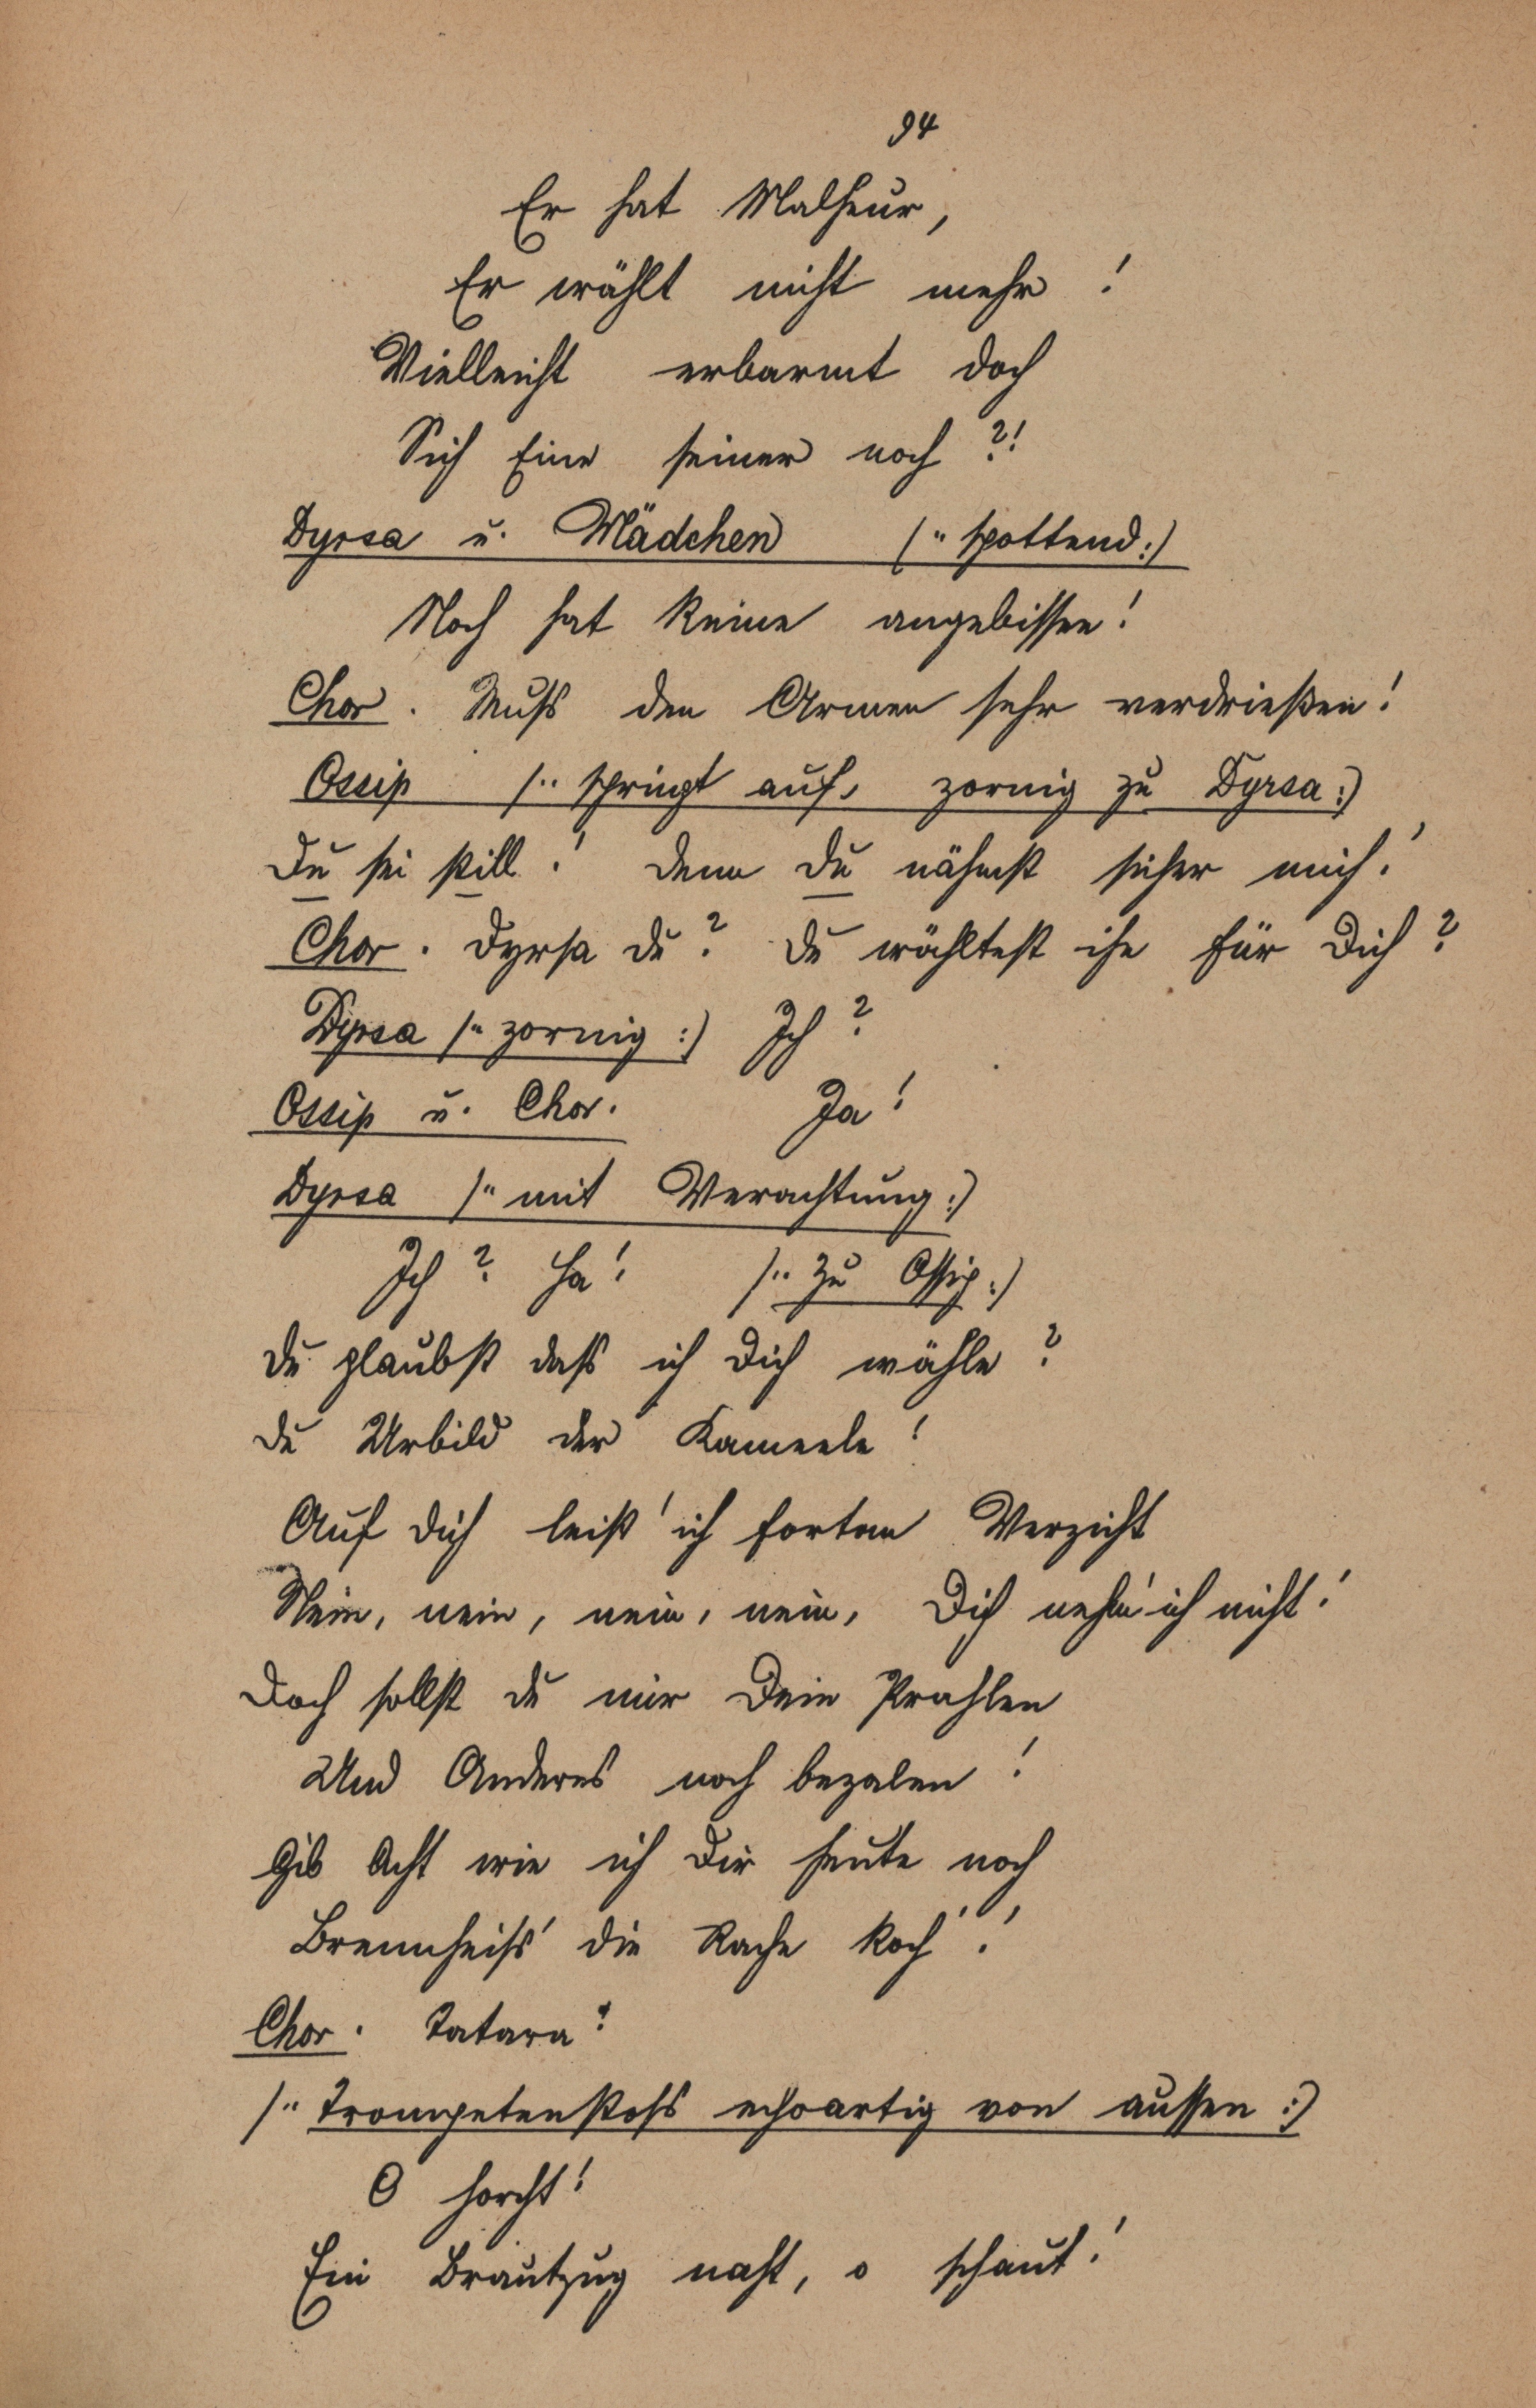 94
Er hat Malheur,
Er wählt nicht mehr !
Vielleicht erbarmt doch
Sich Eine seiner noch ?!
Dyrsa u. Mädchen (: spottend :)
Noch hat Keine angebissen !
Chor . Muss den Armen sehr verdrießen !
Ossip (: springt auf, zornig zu Dyrsa :)
Du sei still ! denn du nähmst sicher mich !
Chor . Dyrsa du ? du wähltest ihn für Dich ?
Dyrsa (: zornig :) Ich ?
Ossip u. Chor. Ja !
Dyrsa (: mit Verachtung :)
Ich ? Ha ! (: zu Ossip :)
du glaubst dass ich Dich wähle ?
du Urbild der Kameele !
Auf dich leist' ich fortan Verzicht
Nein, nein, nein, nein, Dich nehm' ich nicht !
Doch sollst du mir Dein Prahlen
Und Anderes noch bezalen !
Gib Acht wie ich Dir heute noch
Brennheiss' die Rache koch' !
Chor . Tatara !
(: Trompetenstoss echoartig von aussen :)
O horcht !
Ein Brautzug naht, o schaut !